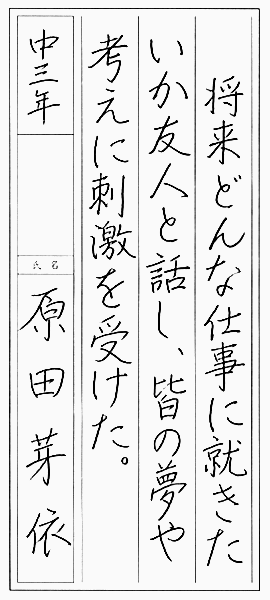 将来どんな仕事に就きた
いか友人と話し、皆の夢や
考えに刺激を受けた。
中三年
氏名
原田芽依